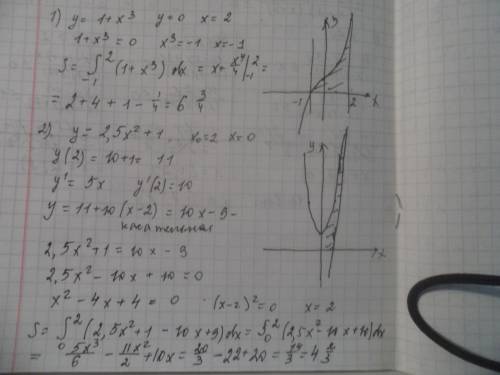 1) y = 1+x³ y=0 x=2
1+x³=0 x³=-1 x=-1
S = ∫₋₁² (1+x³) dx = x+x⁴/4 |₋₁² =
= 2+4+1-1/4 = 6 3/4
y
-1 2 x
2). y = 2,5x²+1, x₀=2 x=0
y(2) = 10+1 = 11
y' = 5x y'(2)=10
y = 11+10(x-2) = 10x-9-
касательная
y
x
2,5x²+1=10x-9
2,5x²-10x+10=0
x²-4x+4=0 (x-2)²=0 x=2
S=∫₀² (2,5x²+1-10x+9)dx = ∫₀² (2,5x²-10x+10)dx
= 5x³/6 - 11x²/2 + 10x = 20/3 - 22+20 = 14/3 = 4 2/3